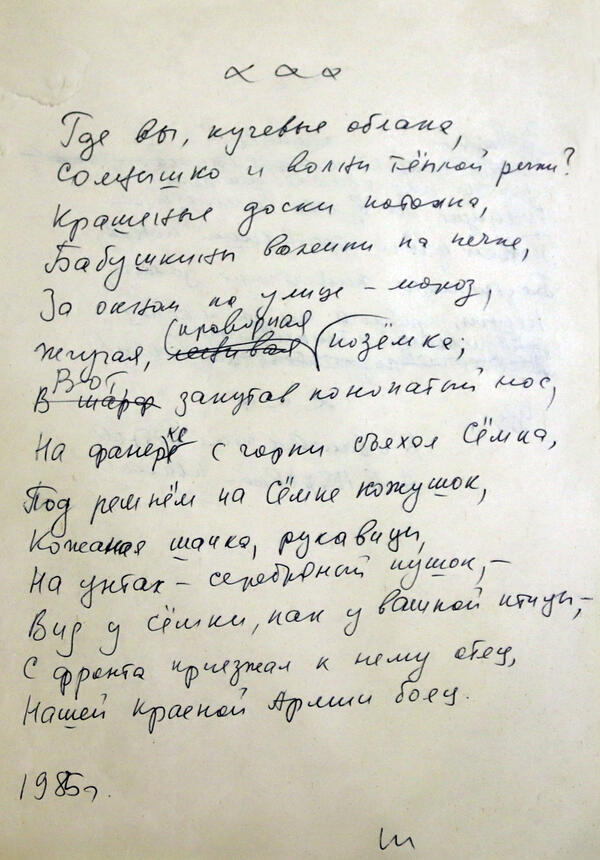 Где вы, кучевые облака,
Солнышко и волны тёплой речки?
Крашеные доски потолка,
Бабушкины валенки на печке,
За окном на улице – мороз,
жгучая, проворная позёмка;
Вот, закутав конопатый нос,
На фанерке с горки съехал Сёмка,
Под ремнём на Сёмке кожушок,
Кожаная шапка, рукавицы,
На унтах – серебряный пушок, –
Вид у Сёмки, как у важной птицы, –
С фронта приезжал к нему отец,
Нашей Красной Армии боец.
1985г.